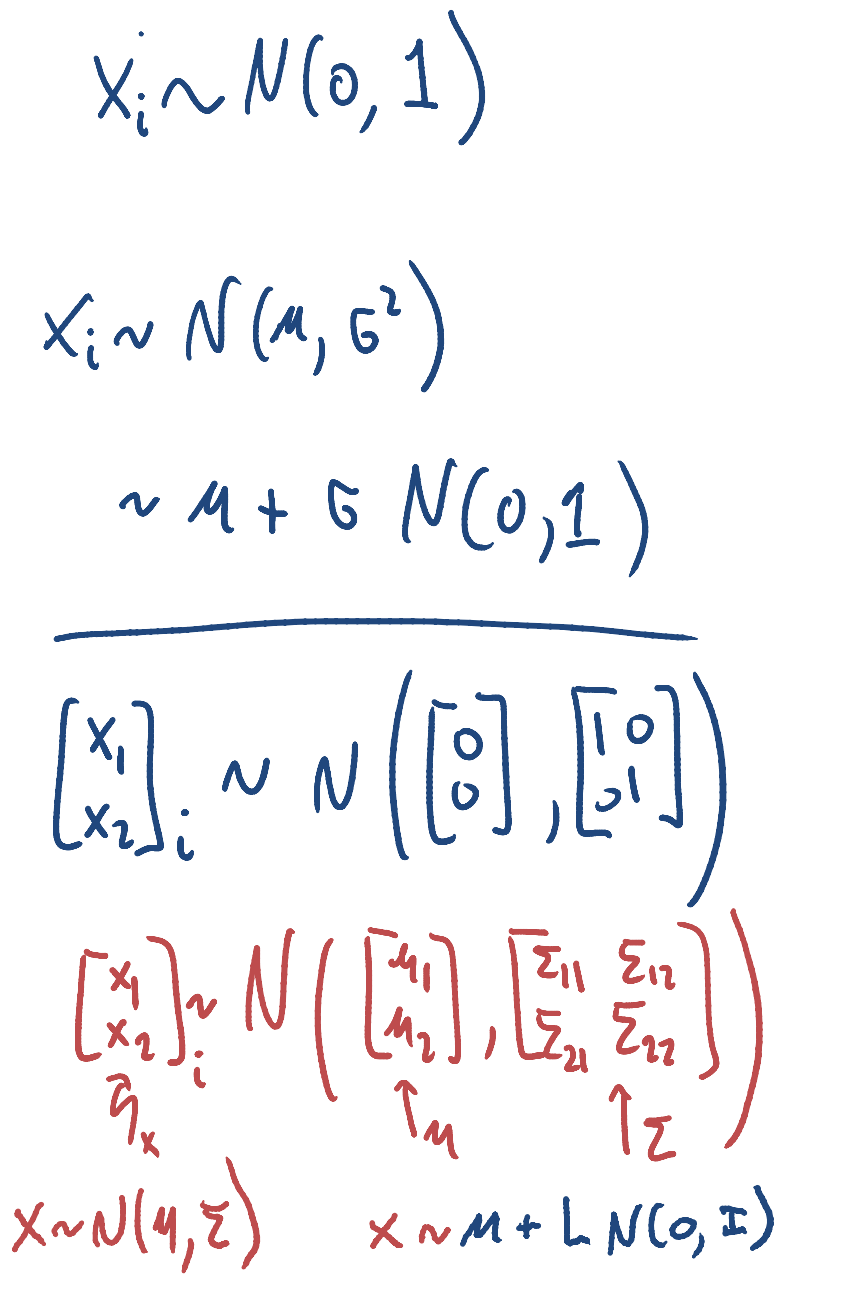 xᵢ ~ N(0, 1)
xᵢ ~ N(μ, σ²)
~ μ + σ N(0, 1)
[x₁ x₂]ᵢ ~ N([0 0], [1 0 0 1])
[x₁ x₂]ᵢ ~ N([μ₁ μ₂], [Σ₁₁ Σ₁₂ Σ₂₁ Σ₂₂])
x ↑μ ↑Σ
x ~ N(μ, Σ) x ~ μ + L N(0, I)